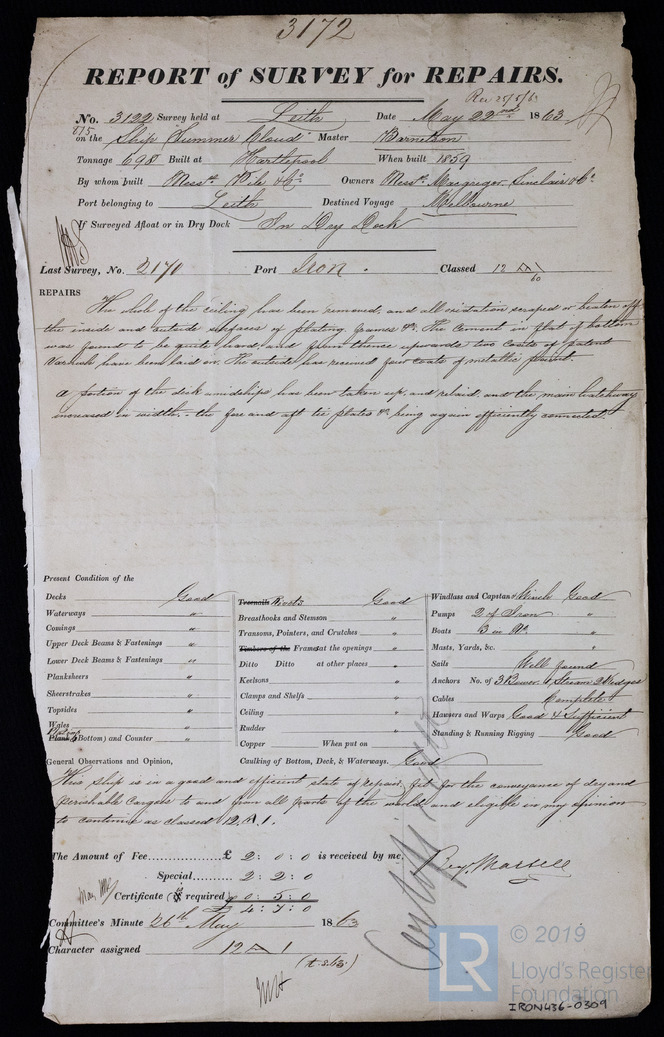 3172
REPORT of SURVEY for REPAIRS.
Rec 25/5/63
No. 3122 Survey held at Leith Date May 22nd 1863
on the Ship "Summer Cloud" Master
Tonnage 698 Built at Hartlepool When built 1859
By whom built Messrs. Pile & Co. Owners Messrs. Macgregor Sinclair & Co.
Port belonging to Leith Destined Voyage Melbourne
If Surveyed Afloat or in Dry Dock In Dry Dock
Last Survey, No. 2170 Port Iron. Classed 12 A 1
60
REPAIRS
The whole of the ceiling has been removed, and all oxidation scraped or beaten off
the inside and outside surfaces of plating, frames &c. The Cement in flat of bottom
was found to be quite hard, and from thence upwards two Coats of patent
Varnish have been laid on. The outside has received four coats of metallic paint.
A portion of the deck amidships has been taken up, and relaid, and the main hatchway
increased in width. - the fore and aft tie plates &c. being again efficiently connected.
Present Condition of the
Decks Good
Waterways "
Comings "
Upper Deck Beams & Fastenings "
Lower Deck Beams & Fastenings "
Planksheers "
Sheerstrakes "
Topsides "
Wales "
Plating
Plank (Bottom) and Counter "
Treenails Rivets Good
Breasthooks and Stemson "
Transoms, Pointers, and Crutches "
Timbers of the Frames at the openings "
Ditto Ditto at other places "
Keelsons "
Clamps and Shelfs "
Ceiling "
Rudder "
Copper When put on
Caulking of Bottom, Deck, & Waterways. Good
Windlass and Capstan Winch Good
Pumps 2 of Iron "
Boats 3 in No. "
Masts, Yards, &c. "
Sails Well found
Anchors No. of 3 Bower 1 Stream 2 Kedges
Cables Complete
Hawsers and Warps Good & Sufficient
Standing & Running Rigging Good
General Observations and Opinion,
This ship is in a good and efficient state of repair, fit for the conveyance of dry and
perishable Cargoes to and from all parts of the world and eligible in my opinion
to continue as classed 12 A 1.
The Amount of Fee............... £ 2 : 0 : 0 is received by me,
Special......... 2 : 2 : 0
Certificate (if required) 0 : 5 : 0
£ 4 : 7 : 0
Committee's Minute 26th May 1863
Character assigned 12 A 1
(t.s.63.)
LR
© 2019
Lloyd's Register
Foundation
IRON436-0309